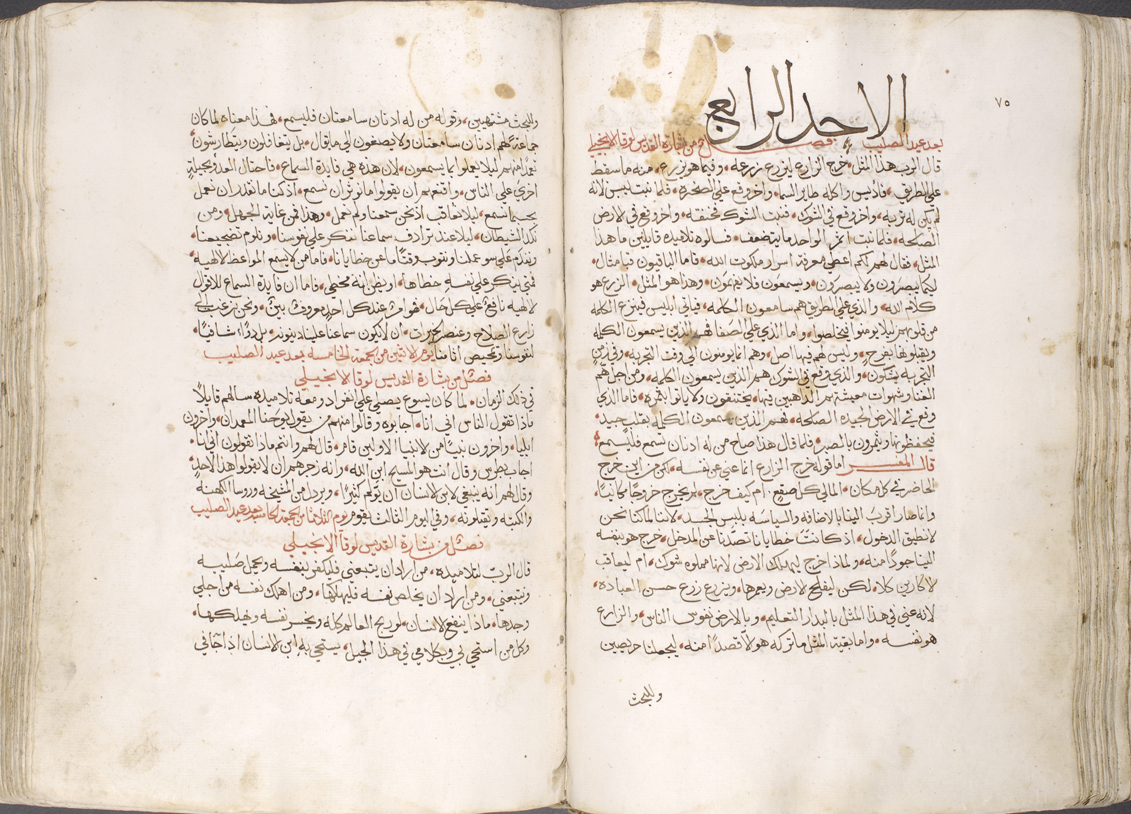 ٧٥
الاحد الرابع
بعد عيد الصليب فصل من بشارة القديس لوقا الانجيلي
قال الرب هذا المثل • خرج الزارع ليزرع زرعه • وفيما هو يزرع • منه ما سقط
على الطريق • فانديس واكله طاير السما • واخر وقع على الصخره • فلما نبت يبس لانه
لم يكن له تربه • واخر وقع في الشوك • فنبت الشوك فخنقه • واخر وقع في الارض
الصالحه • فلما نبت اثمر الواحد مايه ضعف • فسالوه تلاميذه قايلين ما هذا
المثل • فقال لهم لكم اعطي معرفة اسرار ملكوت الله • فاما الباقيون فبامثال •
لكيما يبصرون ولا يبصرون • ويسمعون فلا يفهمون • وهذا هو المثل • الزرع هو
كلام الله • والذي على الطريق هم سامعون الكلمه • فياتي ابليس فينزع الكلمه
من قلوبهم ليلا يومنوا فيخلصوا • واما الذي على الصفا فهم الذين يسمعون الكلمه
ويقبلوها بفرح • وليس لهم فيها اصل • وهم انما يومنون الى وقت التجربه • وفي زمن
التجربه يشكون • والذي وقع في الشوك هم الذين يسمعون الكلمه • ومن اجل هم
الغنا وشهوات معيشتهم الذاهبين فيها • يختنقون ولا ياتوا بثمره • فاما الذي
وقع في الارض الجيده الصالحه • فهم الذين يسمعون الكلمه بقلب جيد •
فيحفظونها ويثمرون بالصبر • فلما قال هذا صاح من له اذنان تسمع فليسمع •
قال المفسر اما قوله خرج الزارع انما عني عن نفسه • لكن من اين خرج
الحاضر في كل مكان • المالي كل صقع • ام كيف خرج • لم يخرج خروجا مكانيا •
وانما صار اقرب الينا بالاضافه والسياسه بلبس الجسد • لاننا لما كنا نحن
لا نطيق الدخول • اذ كانت خطايانا تصدنا عن المدخل • خرج هو بنفسه
الينا جودا منه • ولماذا خرج ليهلك الارض لانها مملوه شوك • ام ليعاقب
الاكارين كلا • لكن ليفلح الارض ويعمرها • ويزرع زرع حسن العباده •
لانه عني في هذا المثل بالبدار التعليم • وبالارض نفوس الناس • والزارع
هو نفسه • واما بقية المثل ما تركه هولا قصدا منه • ليجعلنا حريصين
وللبحث
وللبحث مشتهيين • وقوله من له اذنان سامعتان فليسمع • فهذا معناه لما كان
جماعة لهم اذنان سامعتان ولا يصغون الى ما يقال • بل يتغافلون ويتطارشون
تعمدا منهم ليلا يعملوا بما يسمعون • لان هذه هي فايدة السماع • فاحتال العدو بحيلة
اخرى على الناس • واقنعهم ان يقولوا ما نوثر ان نسمع • اذ كنا ما نقدر ان نعمل
بحسبما نسمع • ليلا نعاقب اذ نحن سمعنا ولم نعمل • وهذا من غاية الجهل • ومن
نكد الشيطان • ليلا عند ترادف سماعنا نفكر على نفوسنا • ونلوم تضجيعنا •
ونندم على سو عملنا ونتوب وقتا ما عن خطايانا • فاما من لا يسمع المواعظ الالهيه •
فمتى يذكر على نفسه خطاها • او يظن انه مخطي • فاما ان فايدة السماع للاقوال
الالهيه نافع على كل حال • فهو امر عند كل احد معروف بين • ونحن نرغب الى
زارع الصلاح وعنصر الخيرات • ان لا يكون سماعنا عليا دينونه • بل دوا شافيا •
لنفوسنا وتمحيص اثامنا يوم الاثنين من الجمعه الخامسه بعد عيد الصليب
فصل من بشارة القديس لوقا الانجيلي
في ذلك الزمان • لما كان يسوع يصلي على انفراد ومعه تلاميذه • سالهم قايلا
ماذا تقول الناس اني انا • اجابوه وقالوا منهم من يقول يوحنا المعمدان • واخرون
ايليا • واخرون نبيا من الانبيا الاولين قام • قال لهم وانتم ماذا تقولون اني انا •
اجاب بطرس وقال انت هو المسيح ابن الله • وانه زجرهم ان لا يقولوا هذا لاحد •
وقال لهم انه ينبغي لابن الانسان ان يولم كثيرا • ويرذل من المشيخه وروسا الكهنه
والكتبه ويقتلونه • وفي اليوم الثالث يقوم يوم الثلاثا من الجمعه الخامسه بعد عيد الصليب
فصل من بشارة القديس لوقا الانجيلي
قال الرب لتلاميذه • من اراد ان يتبعني فليكفر بنفسه ويحمل صليبه
ويتبعني • ومن اراد ان يخلص نفسه فليهلكها • ومن اهلك نفسه من اجلي
وجدها • ماذا ينفع الانسان • لو ربح العالم كله ويخسر نفسه ويهلكها •
وكل من استحى بي وبكلامي في هذا الجيل • يستحي به ابن الانسان اذا جا في